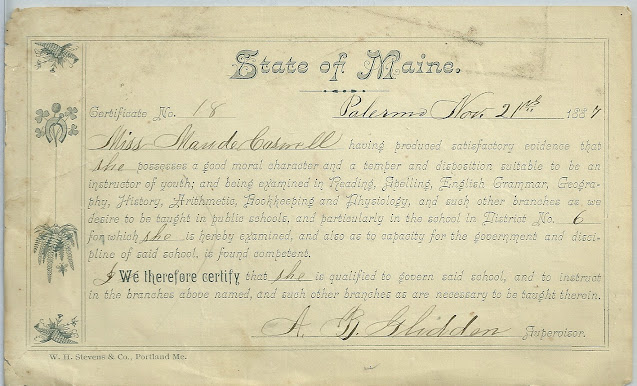 State of Maine.
Certificate No. 18 Palermo Nov. 21st 1887
Miss Maude Carwell having produced satisfactory evidence that
she possesses a good moral character and a temper and disposition suitable to be an
instructor of youth; and being examined in Reading, Spelling, English Grammar, Geogra-
phy, History, Arithmetic, Bookkeeping and Physiology, and such other branches as we
desire to be taught in public schools, and particularly in the school in District No. 6
for which she is hereby examined, and also as to capacity for the government and disci-
pline of said school, is found competent.
I We therefore certify that she is qualified to govern said school, and to instruct
in the branches above named, and such other branches as are necessary to be taught therein.
A. B. Glidden Supervisor.
W. H. Stevens & Co., Portland Me.